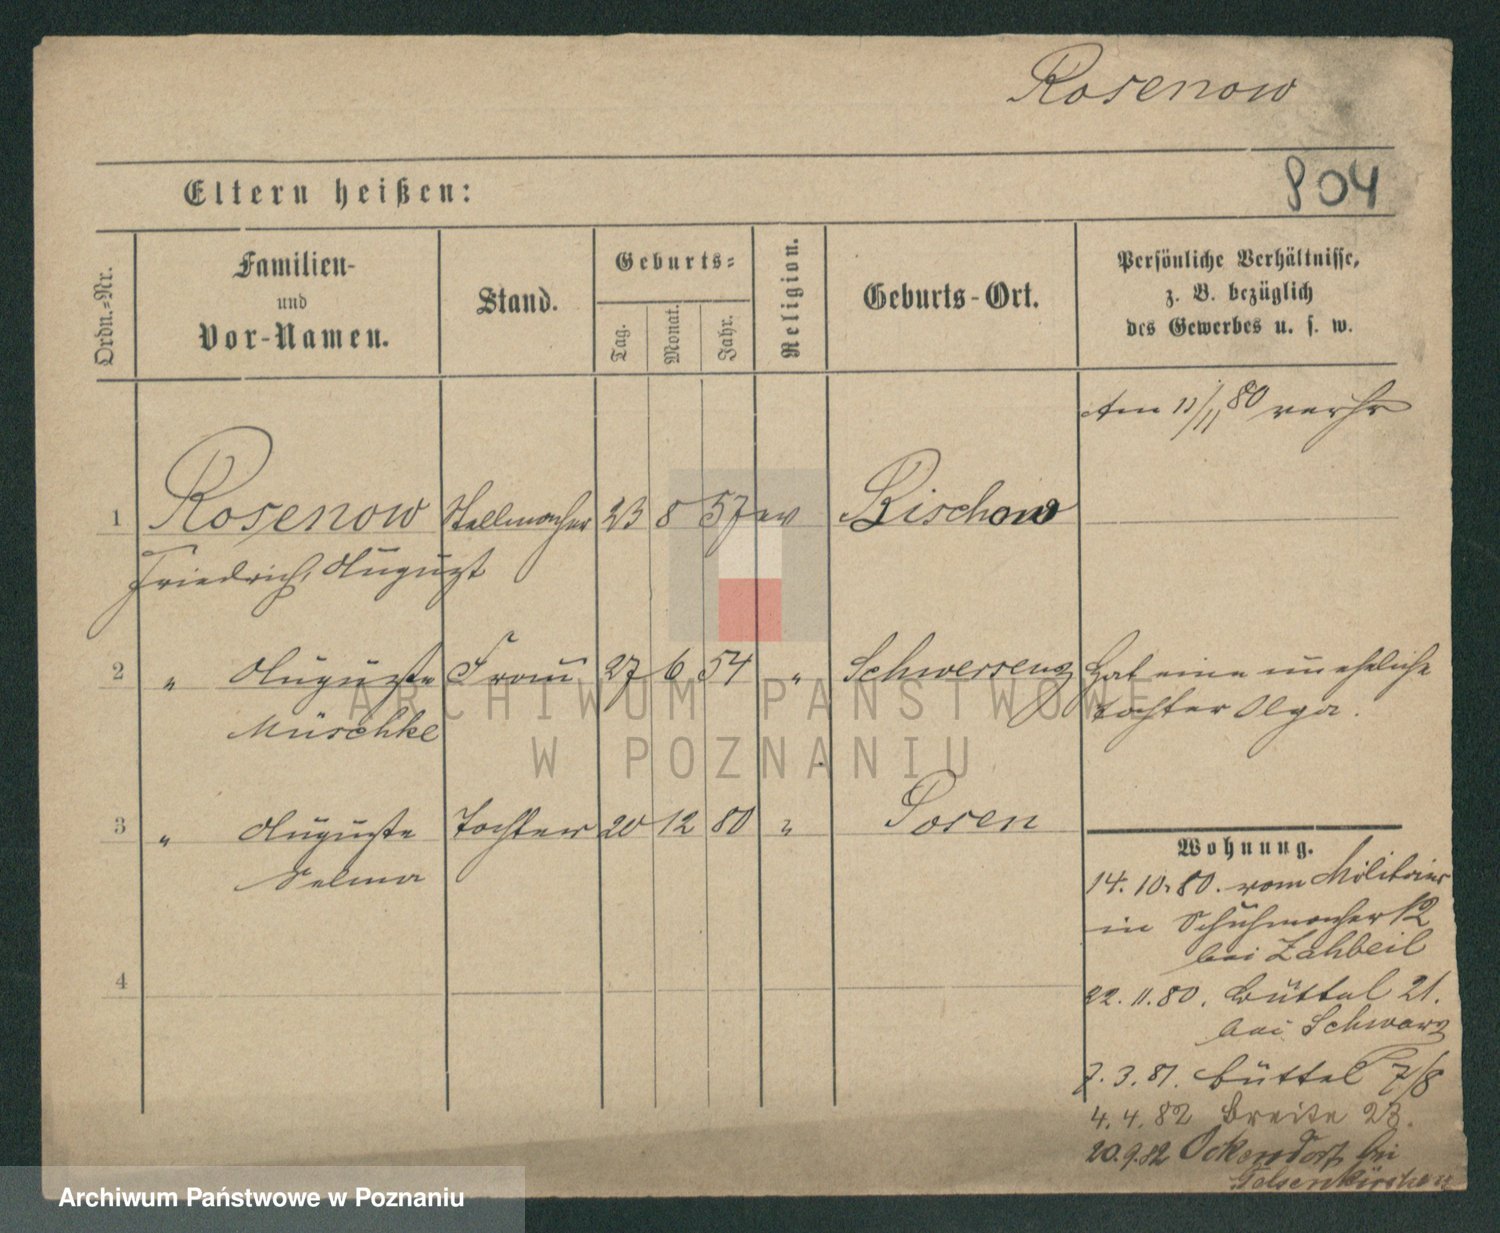 Rosenow
804
Eltern heißen:
Ordn.-Nr.
Familien-
und
Vor-Namen.
Stand.
Geburts-
Tag.
Monat.
Jahr.
Religion.
Geburts-Ort.
Persönliche Verhältnisse,
z. B. bezüglich
des Gewerbes u. s. w.
Am 11/11 80 verhr
1 Rosenow Stellmacher 23 8 57 ev Bischow
Friedrich, August
2 " Auguste Frau 27 6 54 " Schwersenz Hat eine uneheliche
Müschke Tochter Olga.
3 " Auguste Tochter 20 12 80 " Posen
Selma
4
Wohnung.
14.10.80. vom Militair
in Schuhmacher 12
bei Zahbeil
22.11.80. Büttel 21.
bei Schwarz
7.3.81. Büttel 7/8
4.4.82 Breite 23.
20.9.82 Ockendorf bei
Gelsenkirchen
ARCHIWUM PAŃSTWOWE
W POZNANIU
Archiwum Państwowe w Poznaniu